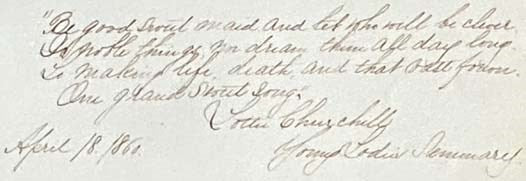 "Be good sweet maid and let who will be clever
Do noble things, nor dream them all day long
So making life, death, and that vast forever
One grand sweet song."
Lottie Churchill
April 18. 1860. Young Ladies Seminary